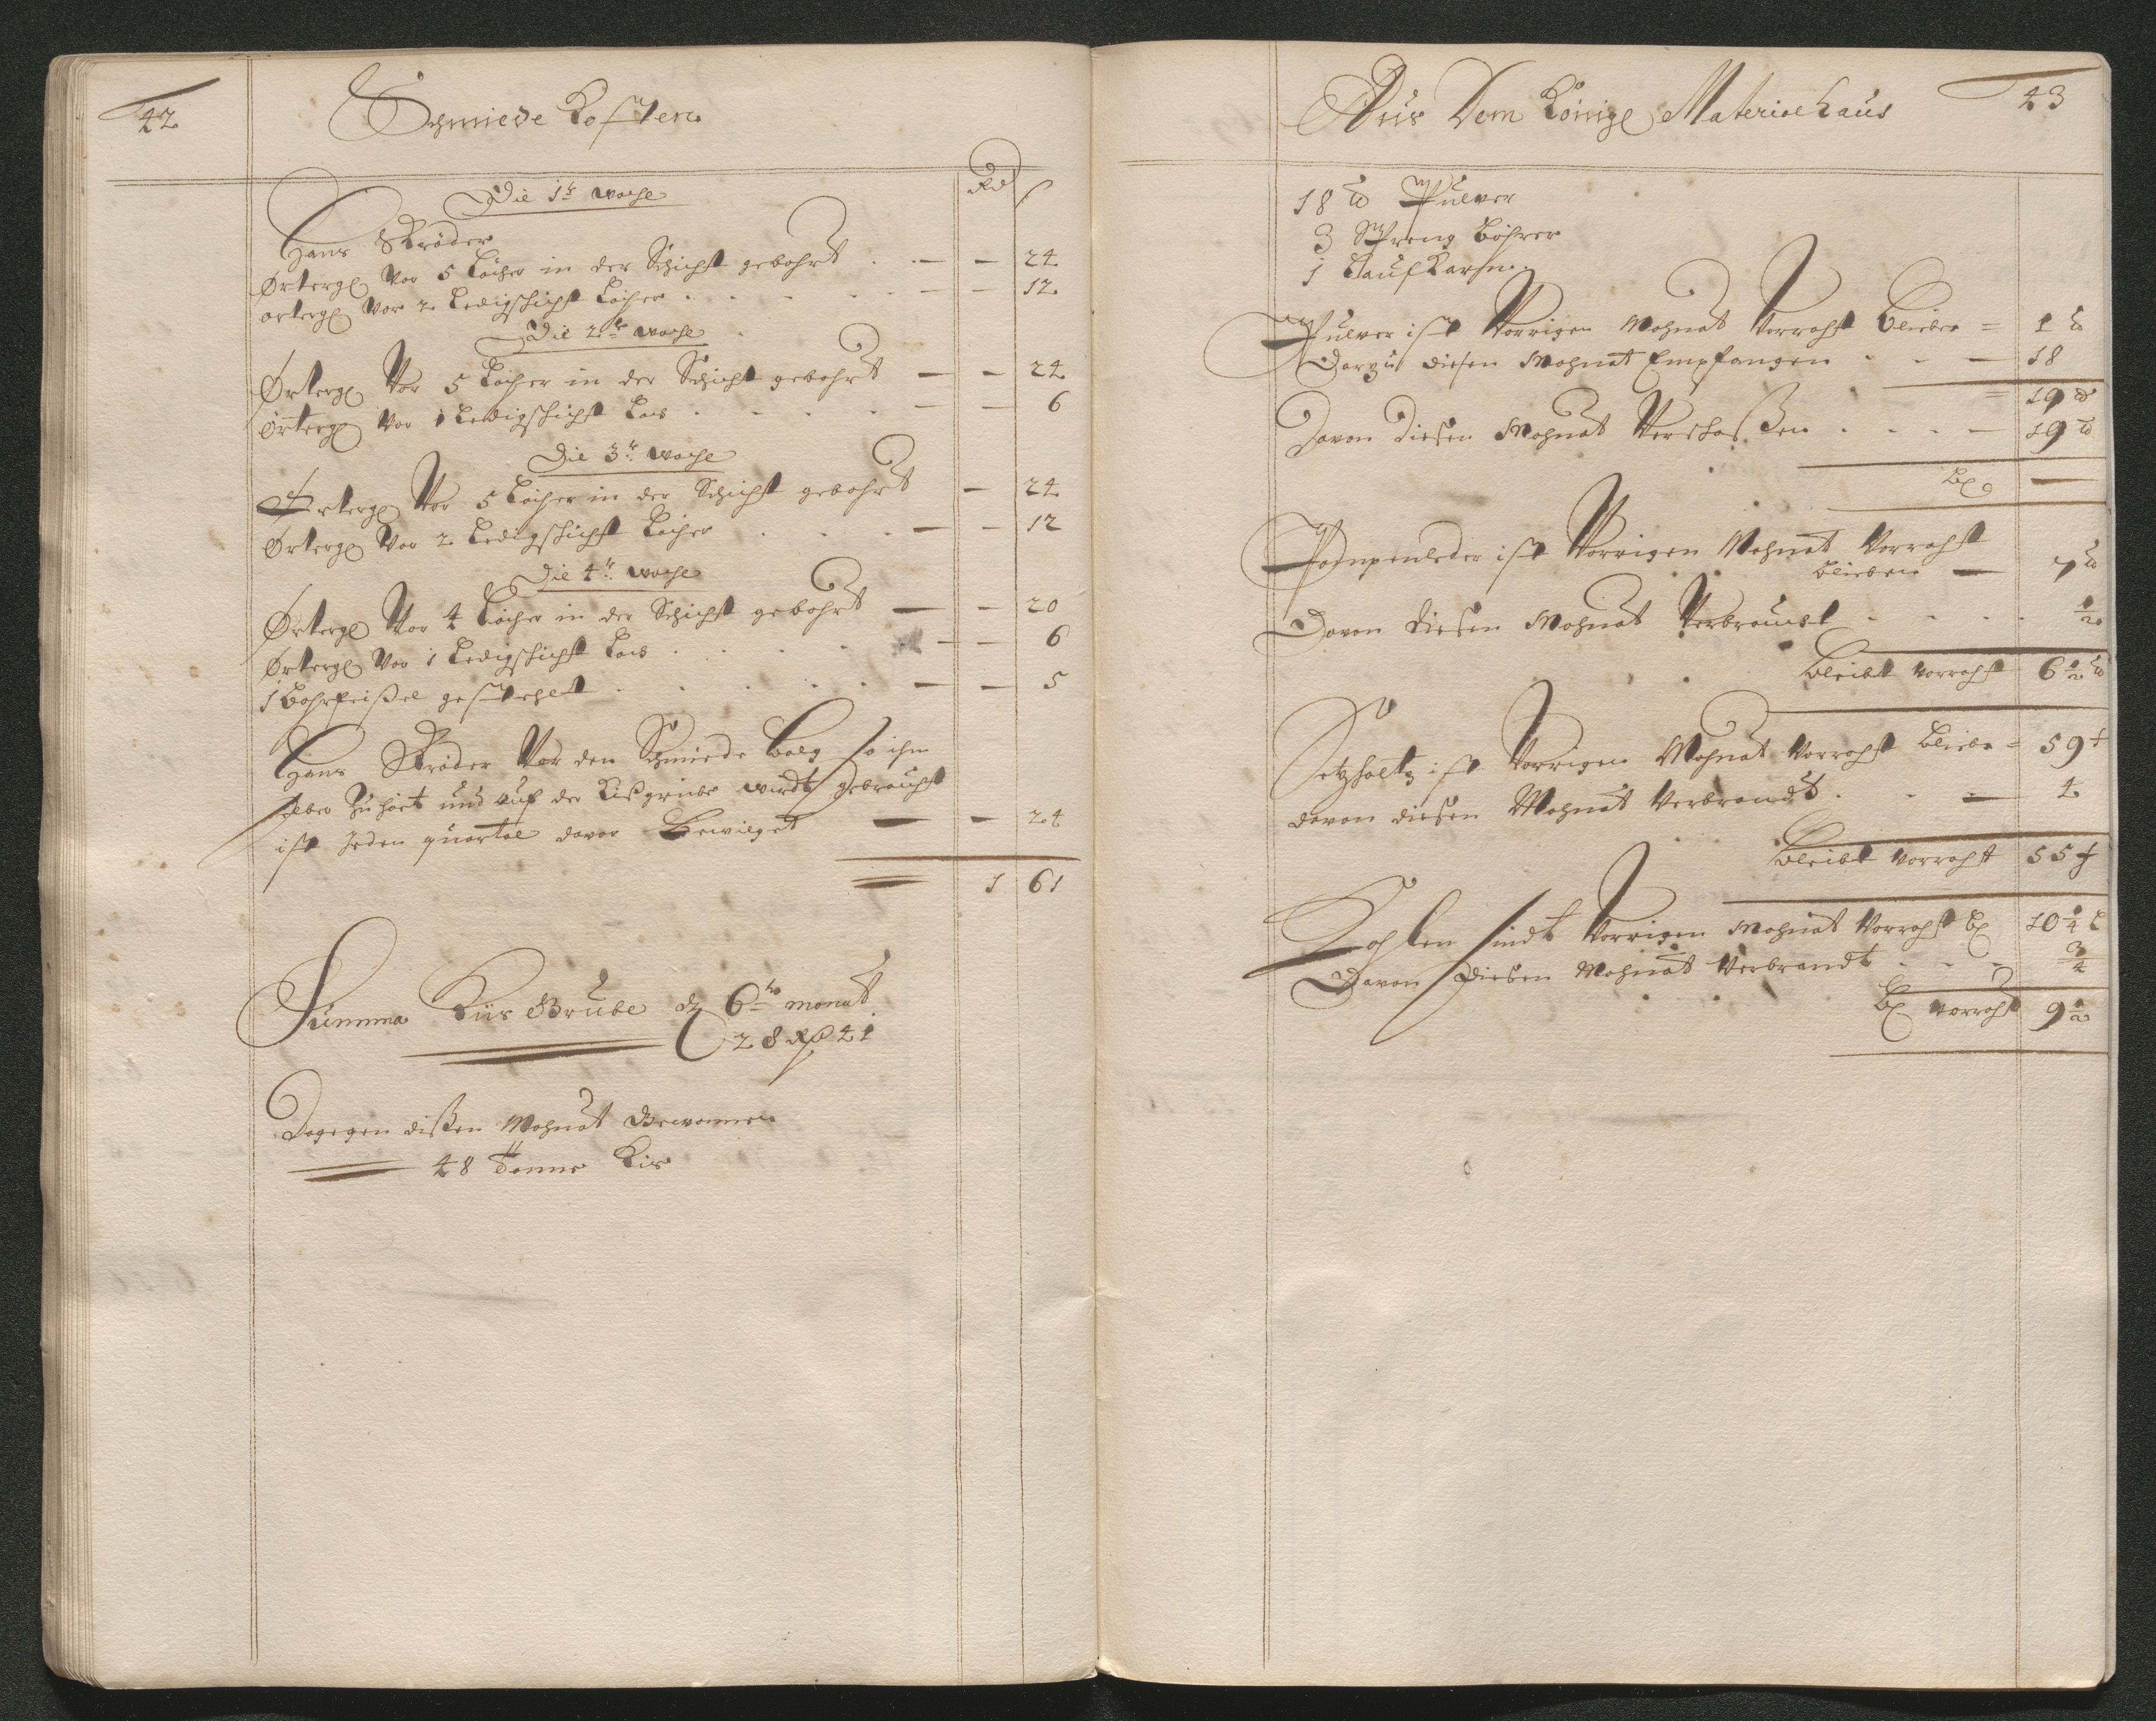 42
Schmiede Kosten
Rd ß
Die 1te woche
Hans Ströder
Örtergl Vor 5 Löcher in der Schicht gebohrt . . — — 24
örtergl Vor 2 Ledigschicht Löcher . . . . — — 12
Die 2te woche
Örtergl Vor 5 Löcher in der Schicht gebohrt — — 24
örtergl Vor 1 Ledigschicht Loch . . . . — — 6
Die 3te woche
Örtergl Vor 5 Löcher in der Schicht gebohrt — 24
Örtergl Vor 2 Ledigschicht Löcher . . . — — 12
Die 4te woche
Örtergl Vor 4 Löcher in der Schicht gebohrt — — 20
Örtergl Vor 1 Ledigschicht Loch . . . . — — 6
1 Bohrfeißel gestehlt . . . . — — 5
Hans Ströder Vor den Schmiede balg so ihm
selber Zu hört und auf der Kißgrube wirdt gebraucht
ist Jeden quartal davor Bewilget — — 24
1 61
Summa Kiis Grube dß 6te monat
28 Rß 41
Dagegen dißen Mohnat Gewonnen
48 tonne Kis
43
Aus Dem Königl Materialhaus
18 ℔ Pulver
3 Spreng Bohrer
1 Laufkarn
Pulver ist Vorrigen Mohnat Vorraht blieben = 1 ℔
Darzu diesen Mohnat Empfangen . . — 18
= 19 ℔
Davon diesen Mohnat Verschoßen . . . . — 19 ℔
Bl —
Pompenleder ist Vorrigen Mohnat Vorraht
blieben — 7 ℔
Davon diesen Mohnat Verbraucht . . . . ½
bleibt vorraht 6½ ℔
Setzholtz ist Vorrigen Mohnat Vorraht blieben = 59 f
davon diesen Mohnat Verbrandt . . — 4
bleibt vorraht 55 f
Kohlen sindt Vorrigen Mohnat Vorraht bl 10¼ l
Davon diesen Mohnat Verbrandt . . . ¾
bl vorraht 9½